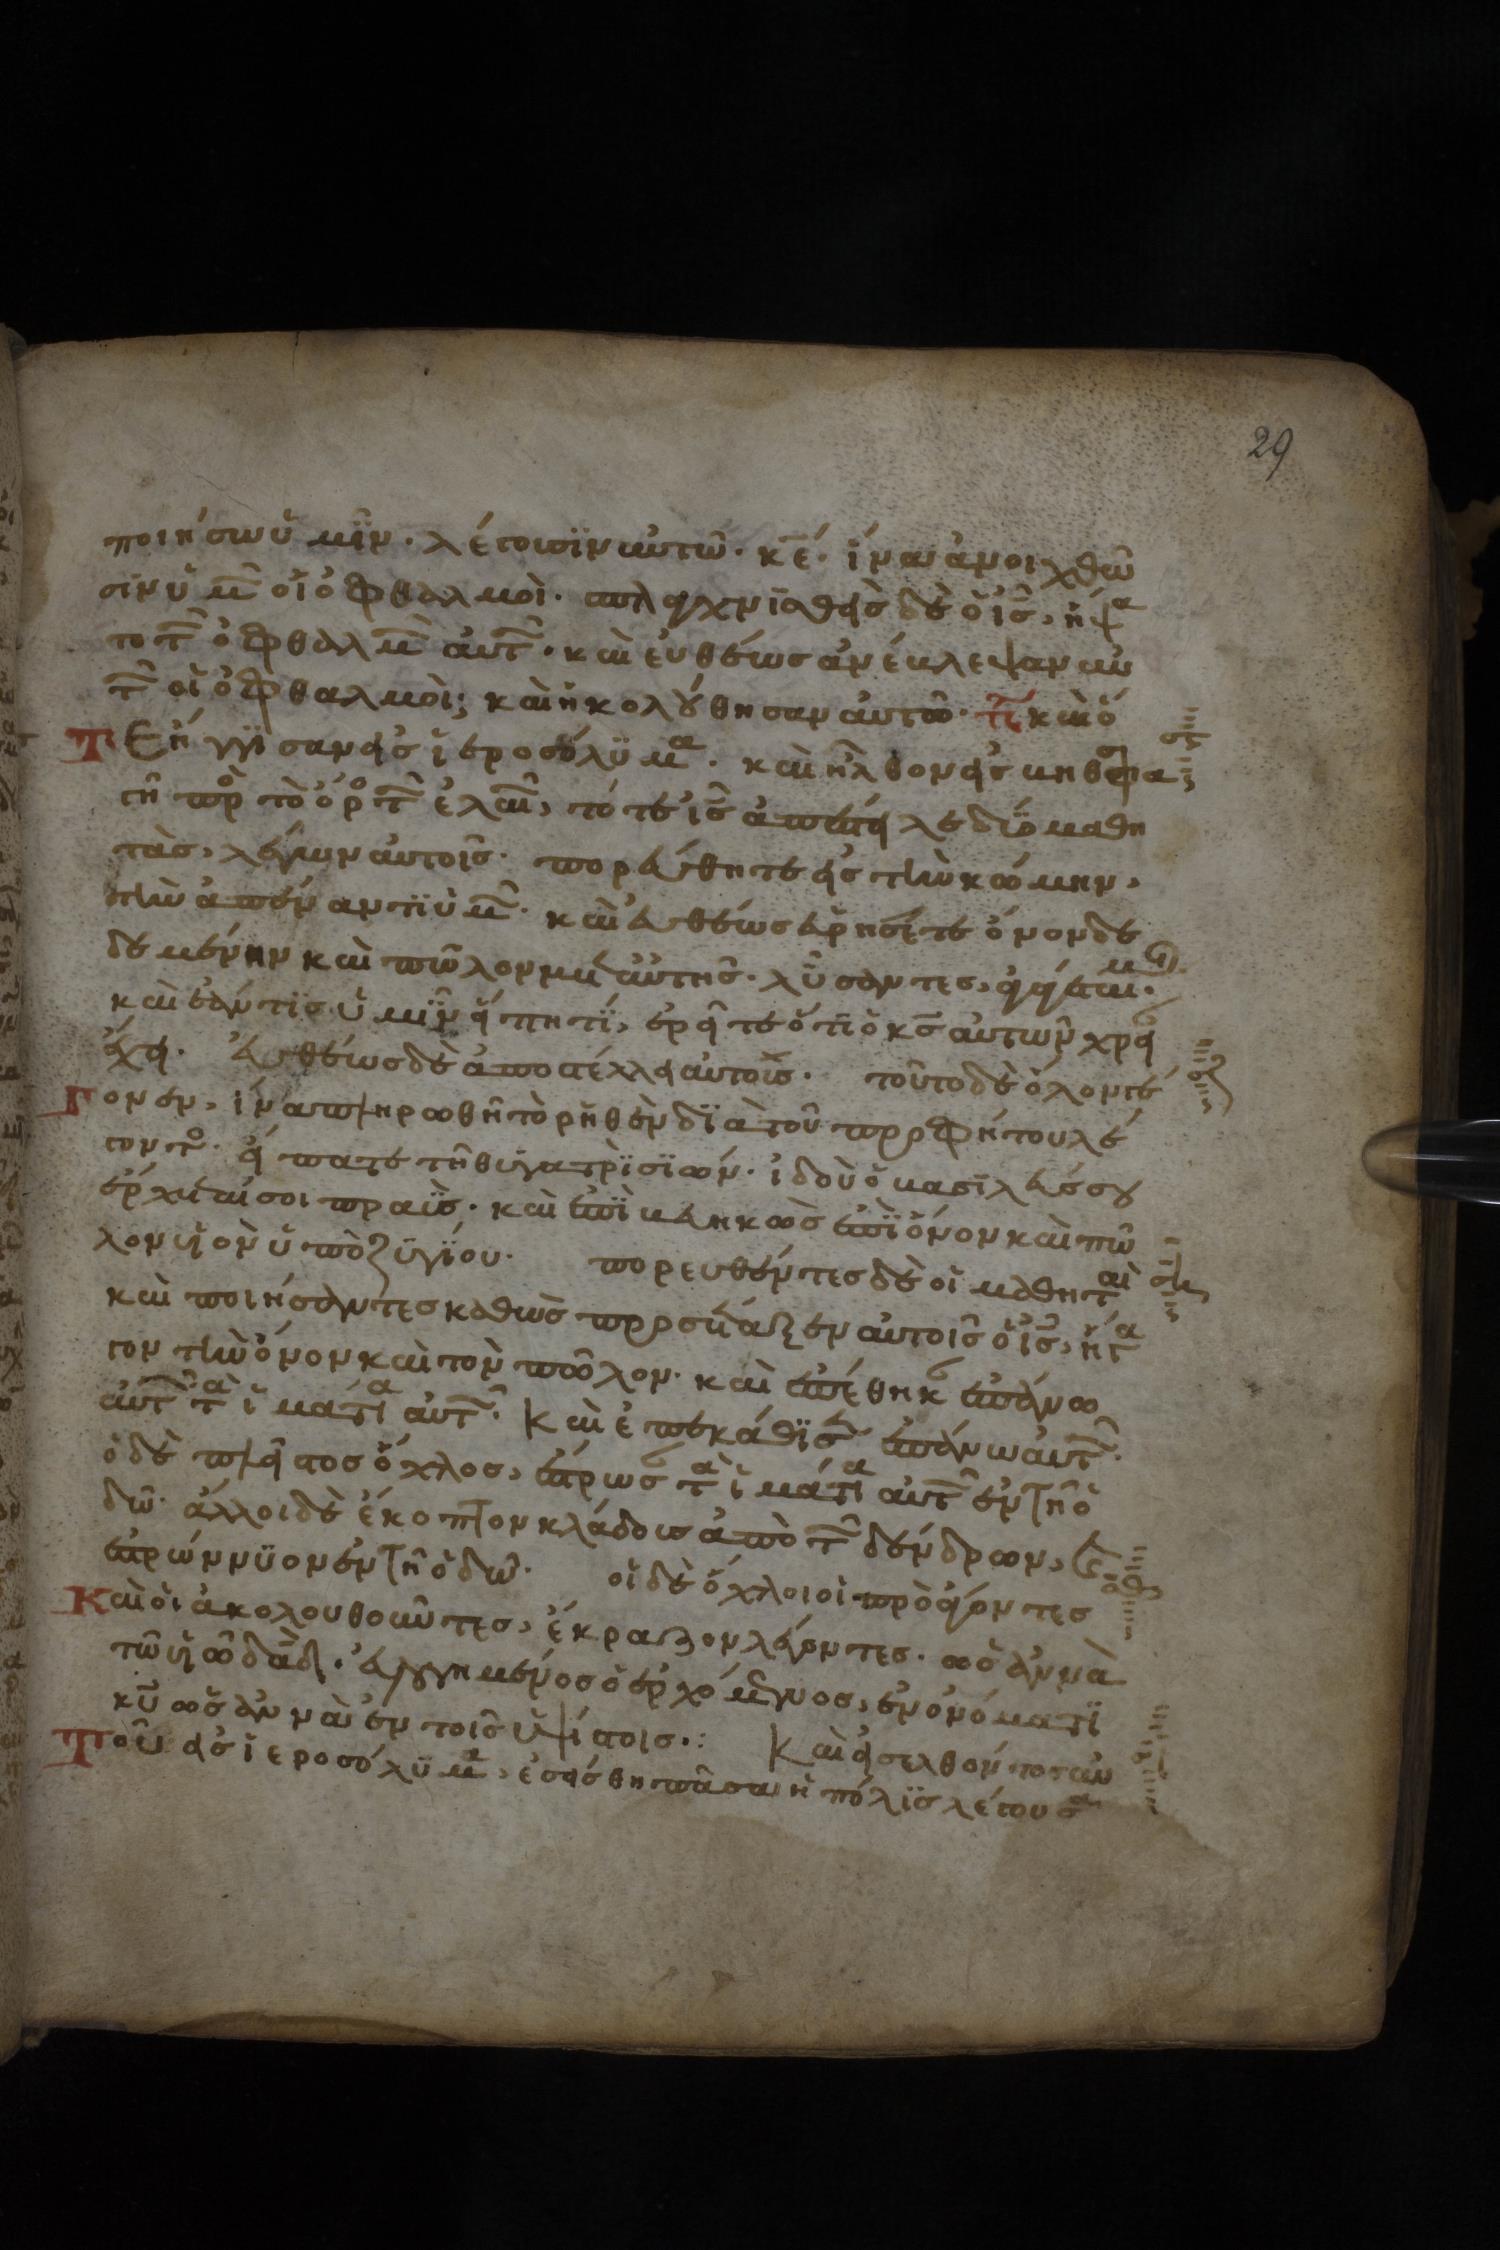 29
ποιήσω ὑμῖν· λέγουσιν αὐτῶ· κ̅ε̅· ἵνα ἀνοιχθῶ
σιν ὑμ͂ οἱ ὀφθαλμοὶ· σπλαχνισθεὶς δὲ ὁ ι̅ς̅, ἥψα
το τ͂ ὀφθαλμ͂ αὐτ͂· καὶ εὐθέως ἀνέβλεψαν αὐ
τ͂ οἱ ὀφθαλμοὶ; καὶ ἠκολούθησαν αὐτῶ· καὶ ὅ
τε ἤγγισαν εἰς ἱεροσόλυμα· καὶ ἦλθον εἰς βηθσφα
γῆ πρὸ τὸ ὄρο τ͂ ἐλαῖ, τότε ι̅ς̅ ἀπέστειλε δύο μαθη
τὰς, λέγων αὐτοῖς· πορεύθητε εἰς τὴν κώμην,
τὴν ἀπέναντι ὑμ͂· καὶ εὐθέως εὑρήσετε ὄνον δε
δεμένην καὶ πῶλον μετ αὐτῆς· λύσαντες, ἀγάγετέ μοι·
καὶ ἐάν τις ὑμῖν εἴπη τί, ἐρεῖτε ὅτι ὁ κ̅ς̅ αὐτῶν χρεί
ἔχει· εὐθέως δὲ ἀποστέλλει αὐτοῖς· τοῦτο δὲ ὅλον γέ
γονεν, ἵνα πληρωθῆ τὸ ῥηθὲν διὰ τοῦ προφήτου λέ
γοντο· εἴπατε τῆ θυγατρὶ σιών· ἰδοὺ ὁ βασιλεύς σου
ἔρχεταί σοι πραΰς· καὶ ἐπιβεβηκὼς ἐπὶ ὄνον καὶ πῶ
λον υἱὸν ὑποζυγίου· πορευθέντες δὲ οἱ μαθηταὶ
καὶ ποιήσαντες καθὼς προσέταξεν αὐτοῖς ὁ ι̅ς̅, ἤγα
γον τὴν ὄνον καὶ τὸν πῶλον· καὶ ἐπέθηκ ἐπάνω
αὐτ͂ τὰ ἱμάτια αὐτ͂· καὶ ἐπεκάθισεν ἐπάνω αὐτ͂·
ὁ δὲ πλεῖστος ὄχλος, ἔστρωσ τὰ ἱμάτια αὐτ͂ ἐν τῆ ὁ
δῶ· ἄλλοι δὲ ἔκοπτον κλάδους ἀπὸ τ͂ δένδρων, καὶ
ἐστρώννυον ἐν τῆ ὁδῶ· οἱ δὲ ὄχλοι οἱ προάγοντες
καὶ οἱ ἀκολουθοῦντες, ἔκραζον λέγοντες· ὡσαννὰ
τῶ υἱῶ δα̅δ̅· εὐλογημένος ὁ ἐρχόμενος, ἐν ὀνόματι
κ̅υ̅ ὡσαννὰ ἐν τοῖς ὑψίστοις·: καὶ εἰσελθόντος αὐ
τοῦ εἰς ἱεροσόλυμα, ἐσείσθη πᾶσα ἡ πόλις λέγουσα